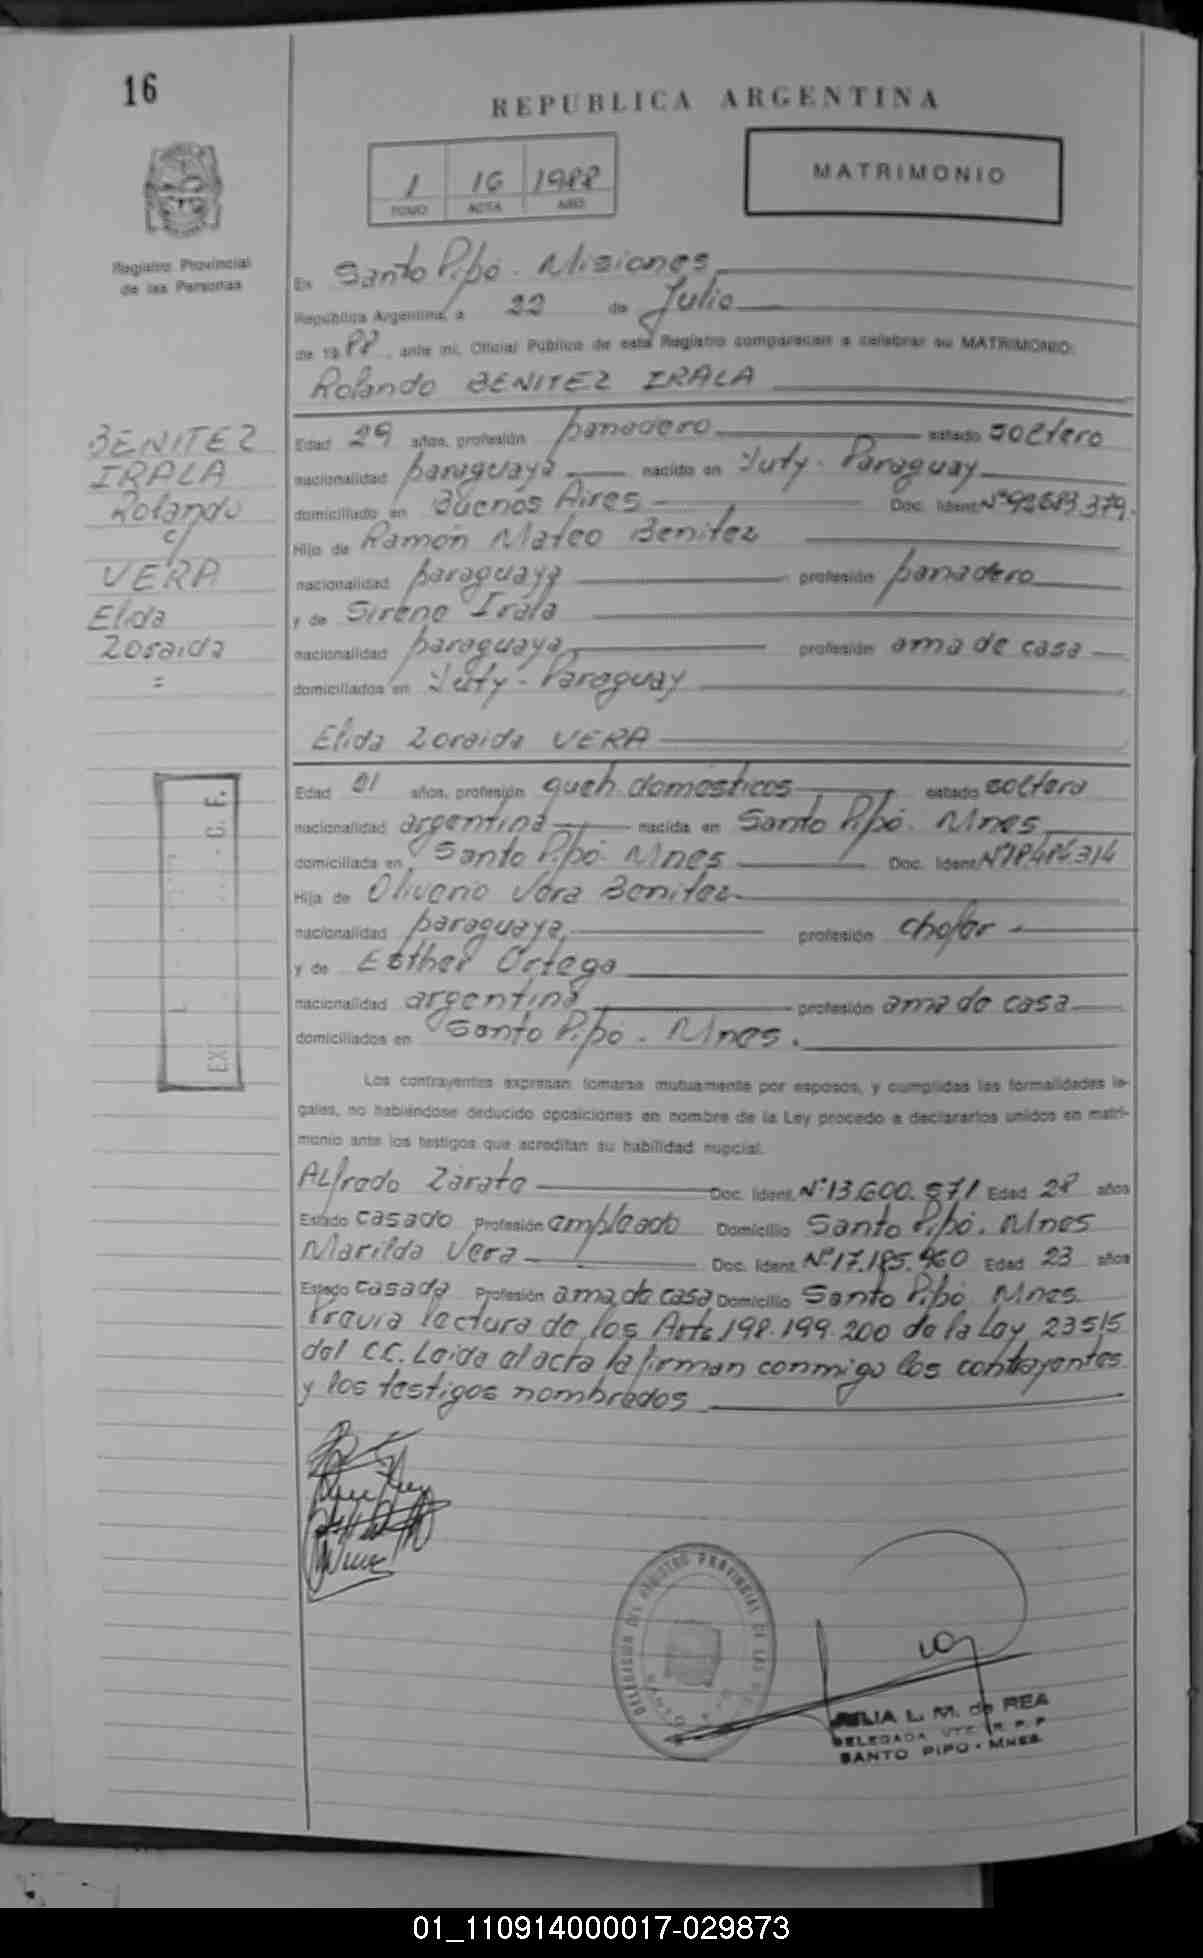 16
REPUBLICA ARGENTINA
1 16 1988
TOMO ACTA AÑO
MATRIMONIO
Registro Provincial
de las Personas
En Santo Pipó. Misiones
República Argentina, a 22 de Julio
de 1988, ante mi, Oficial Público de este Registro comparecen a celebrar su MATRIMONIO:
Rolando BENITEZ IRALA
BENITEZ
IRALA
Rolando
c/
VERA
Elida
Zoraida
=
Edad 29 años, profesión panadero estado soltero
nacionalidad paraguaya nacido en Yuty. Paraguay
domiciliado en Buenos Aires Doc. Ident. Nº 92.683.379.
Hijo de Ramón Mateo Benitez
nacionalidad paraguaya profesión panadero
y de Sirena Irala
nacionalidad paraguaya profesión ama de casa
domiciliados en Yuty - Paraguay
Elida Zoraida VERA
Edad 21 años, profesión queh. domésticos estado soltera
nacionalidad argentina nacida en Santo Pipó. Mnes
domiciliada en Santo Pipó. Mnes Doc. Ident. Nº 18.484.314
Hija de Oliverio Vera Benitez
nacionalidad paraguaya, profesión chofer
y de Esther Ortega
nacionalidad argentina profesión ama de casa
domiciliados en Santo Pipó. Mnes.
Los contrayentes expresan tomarse mutuamente por esposos, y cumplidas las formalidades le-
gales, no habiéndose deducido oposiciones en nombre de la Ley procedo a declararlos unidos en matri-
monio ante los testigos que acreditan su habilidad nupcial.
Alfredo Zárate Doc. Ident. Nº 13.600.571 Edad 28 años
Estado casado Profesión empleado Domicilio Santo Pipó. Mnes
Marilda Vera Doc. Ident. Nº 17.185.960 Edad 23 años
Estado casada Profesión ama de casa Domicilio Santo Pipó. Mnes.
Previa lectura de los Arts 198. 199. 200 de la Ley 23515
del C.C. Leida el acta la firman conmigo los contrayentes
y los testigos nombrados
DELEGACION DEL REGISTRO PROVINCIAL DE LAS
SANTO
JULIA L. M. de REA
DELEGADA R. P. P
SANTO PIPO - MNES.
01_110914000017-029873